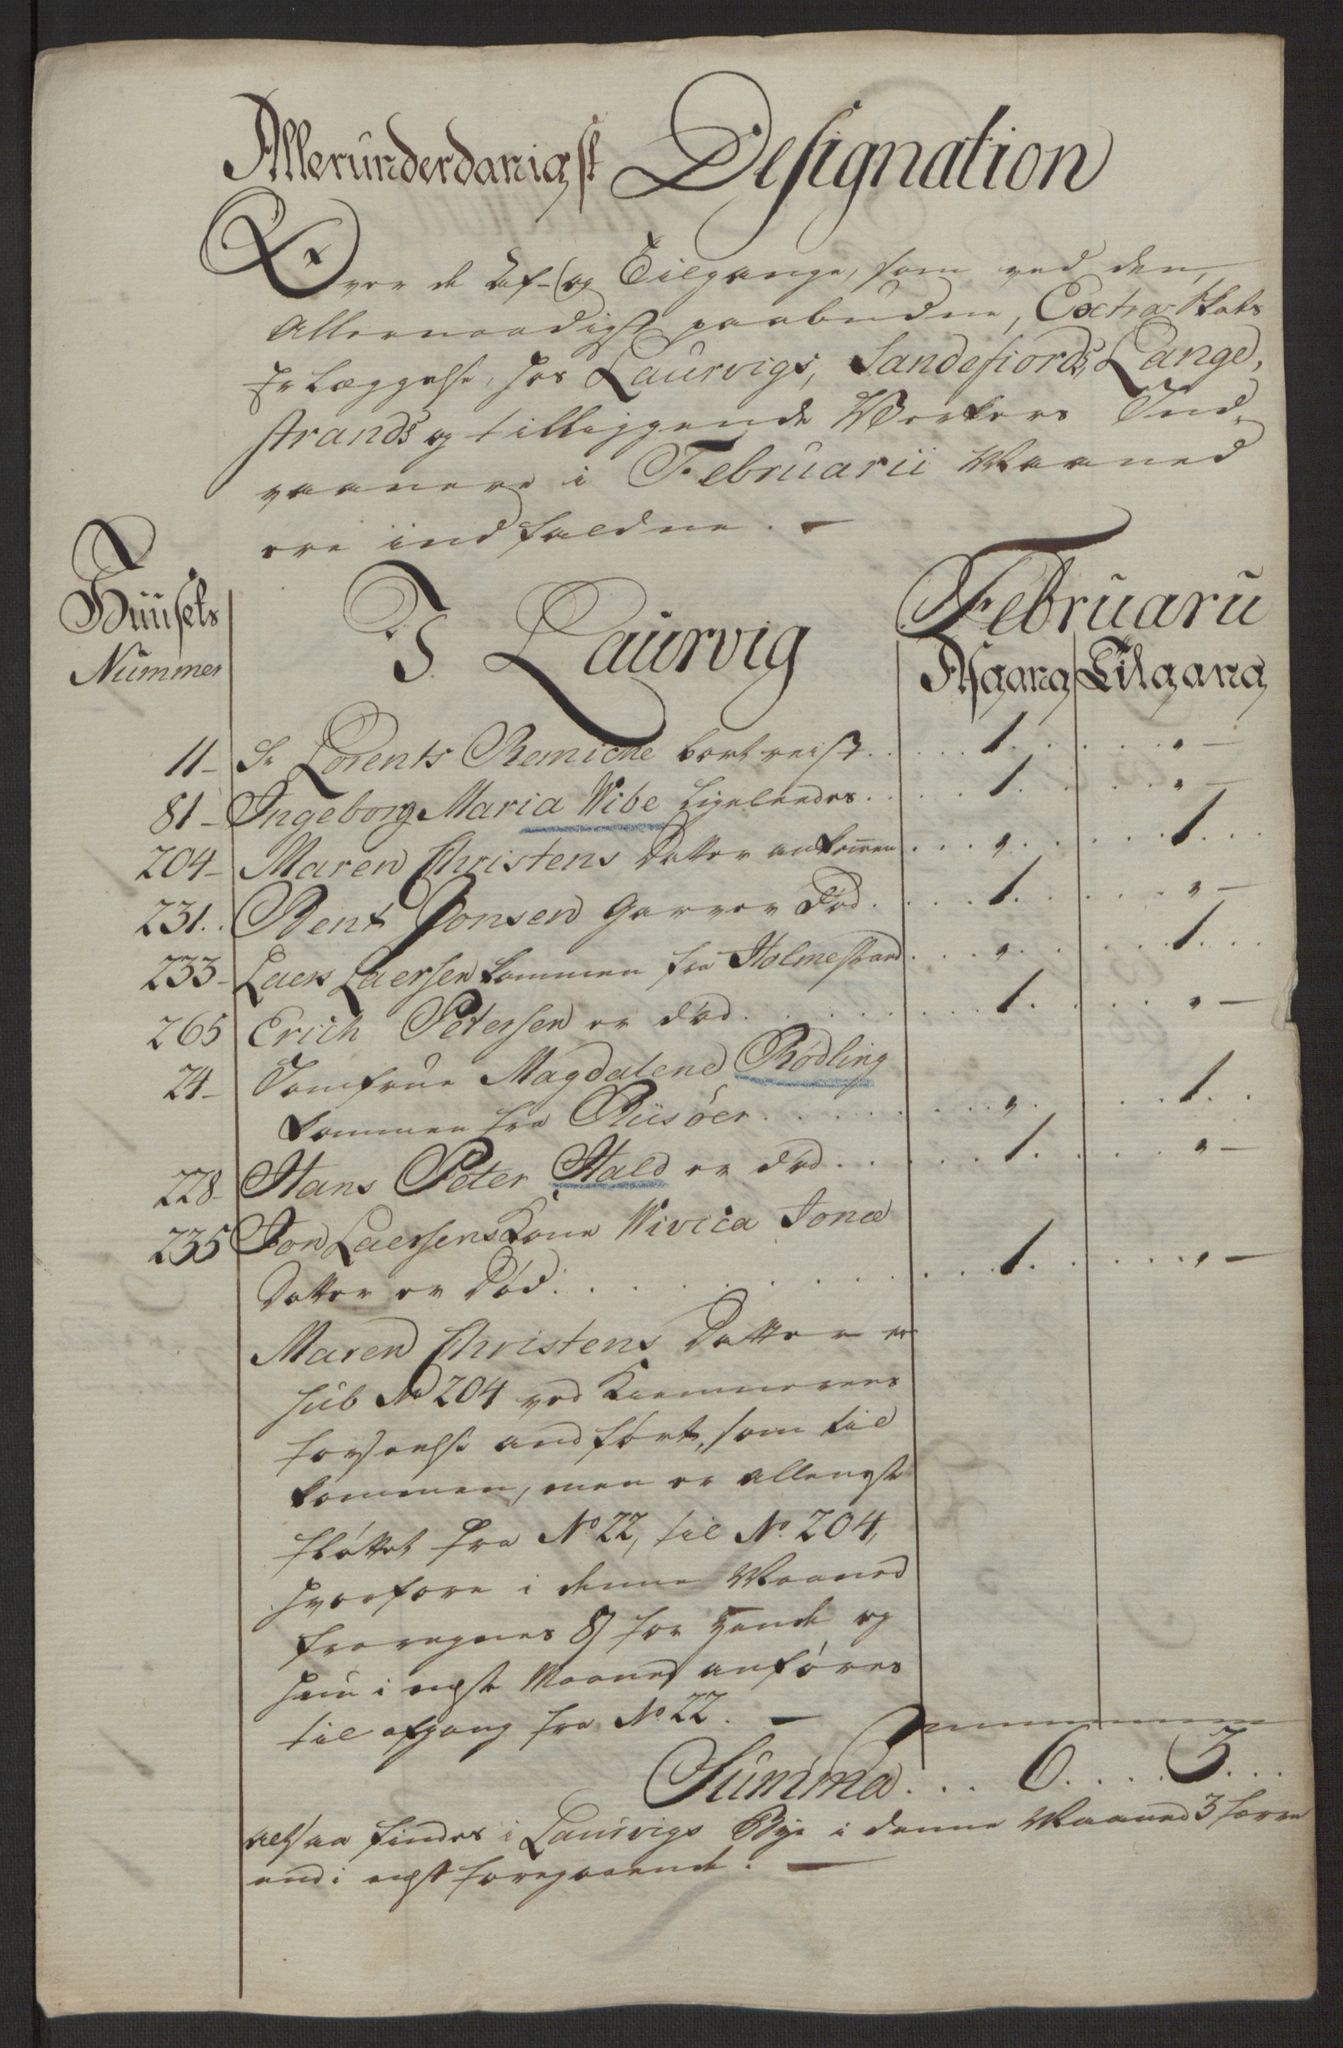 Allerunderdanigst Designation
Over de Af- og Tilgange, som ved den
Allernaadigst paabudne, Extra Skats
Erlæggelse, hos Laurvigs, Sandefiords, Lange-
strands og tilliggende Verkers Ind-
vaanere i Februarii Maaned
ere indfaldne. —
Huusets Nummer
I Laurvig
Februarii
Afgang Tilgang
11 – Sr Lorents Remicke bortreist . . . 1 . . . " –
81 – Ingeborg Maria Wibe ligeleedes . . . 1 . . . " –
204 – Maren Christens Datter ankommen . . . " . . . 1 . . .
231 . . Bent Jonsen Garver Død . . . 1 . . . " –
233 – Laers Laersen kommen fra Holmestrand . . . " . . . 1 . . .
265 Erich Petersen er død . . . 1 . . . " –
24 – Jomfrue Magdalene Rødling
kommen fra Riisøer . . . " . . . 1 . .
228 – Hans Peter Hald er død . . . 1 . . . " –
235 Jon Laersens Kone Wivica Jonæ
Datter er Død . . . 1 . . . " –
Maren Christens Datter er
sub No 204 ved Kiemnerens
forseelse andført, som til
kommen, men er alleneste
fløttet fra No 22, til No. 204,
hvorfore i denne Maaned
fraregnes 8 s for hende og
hun i næste Maaned anføres
til afgang fra No 22. —
Summa . . . 6 . . . . 3 . . .
altsaa findes i Laurvigs Bye i denne Maaned 3 færre
end i næst foregaaende. —